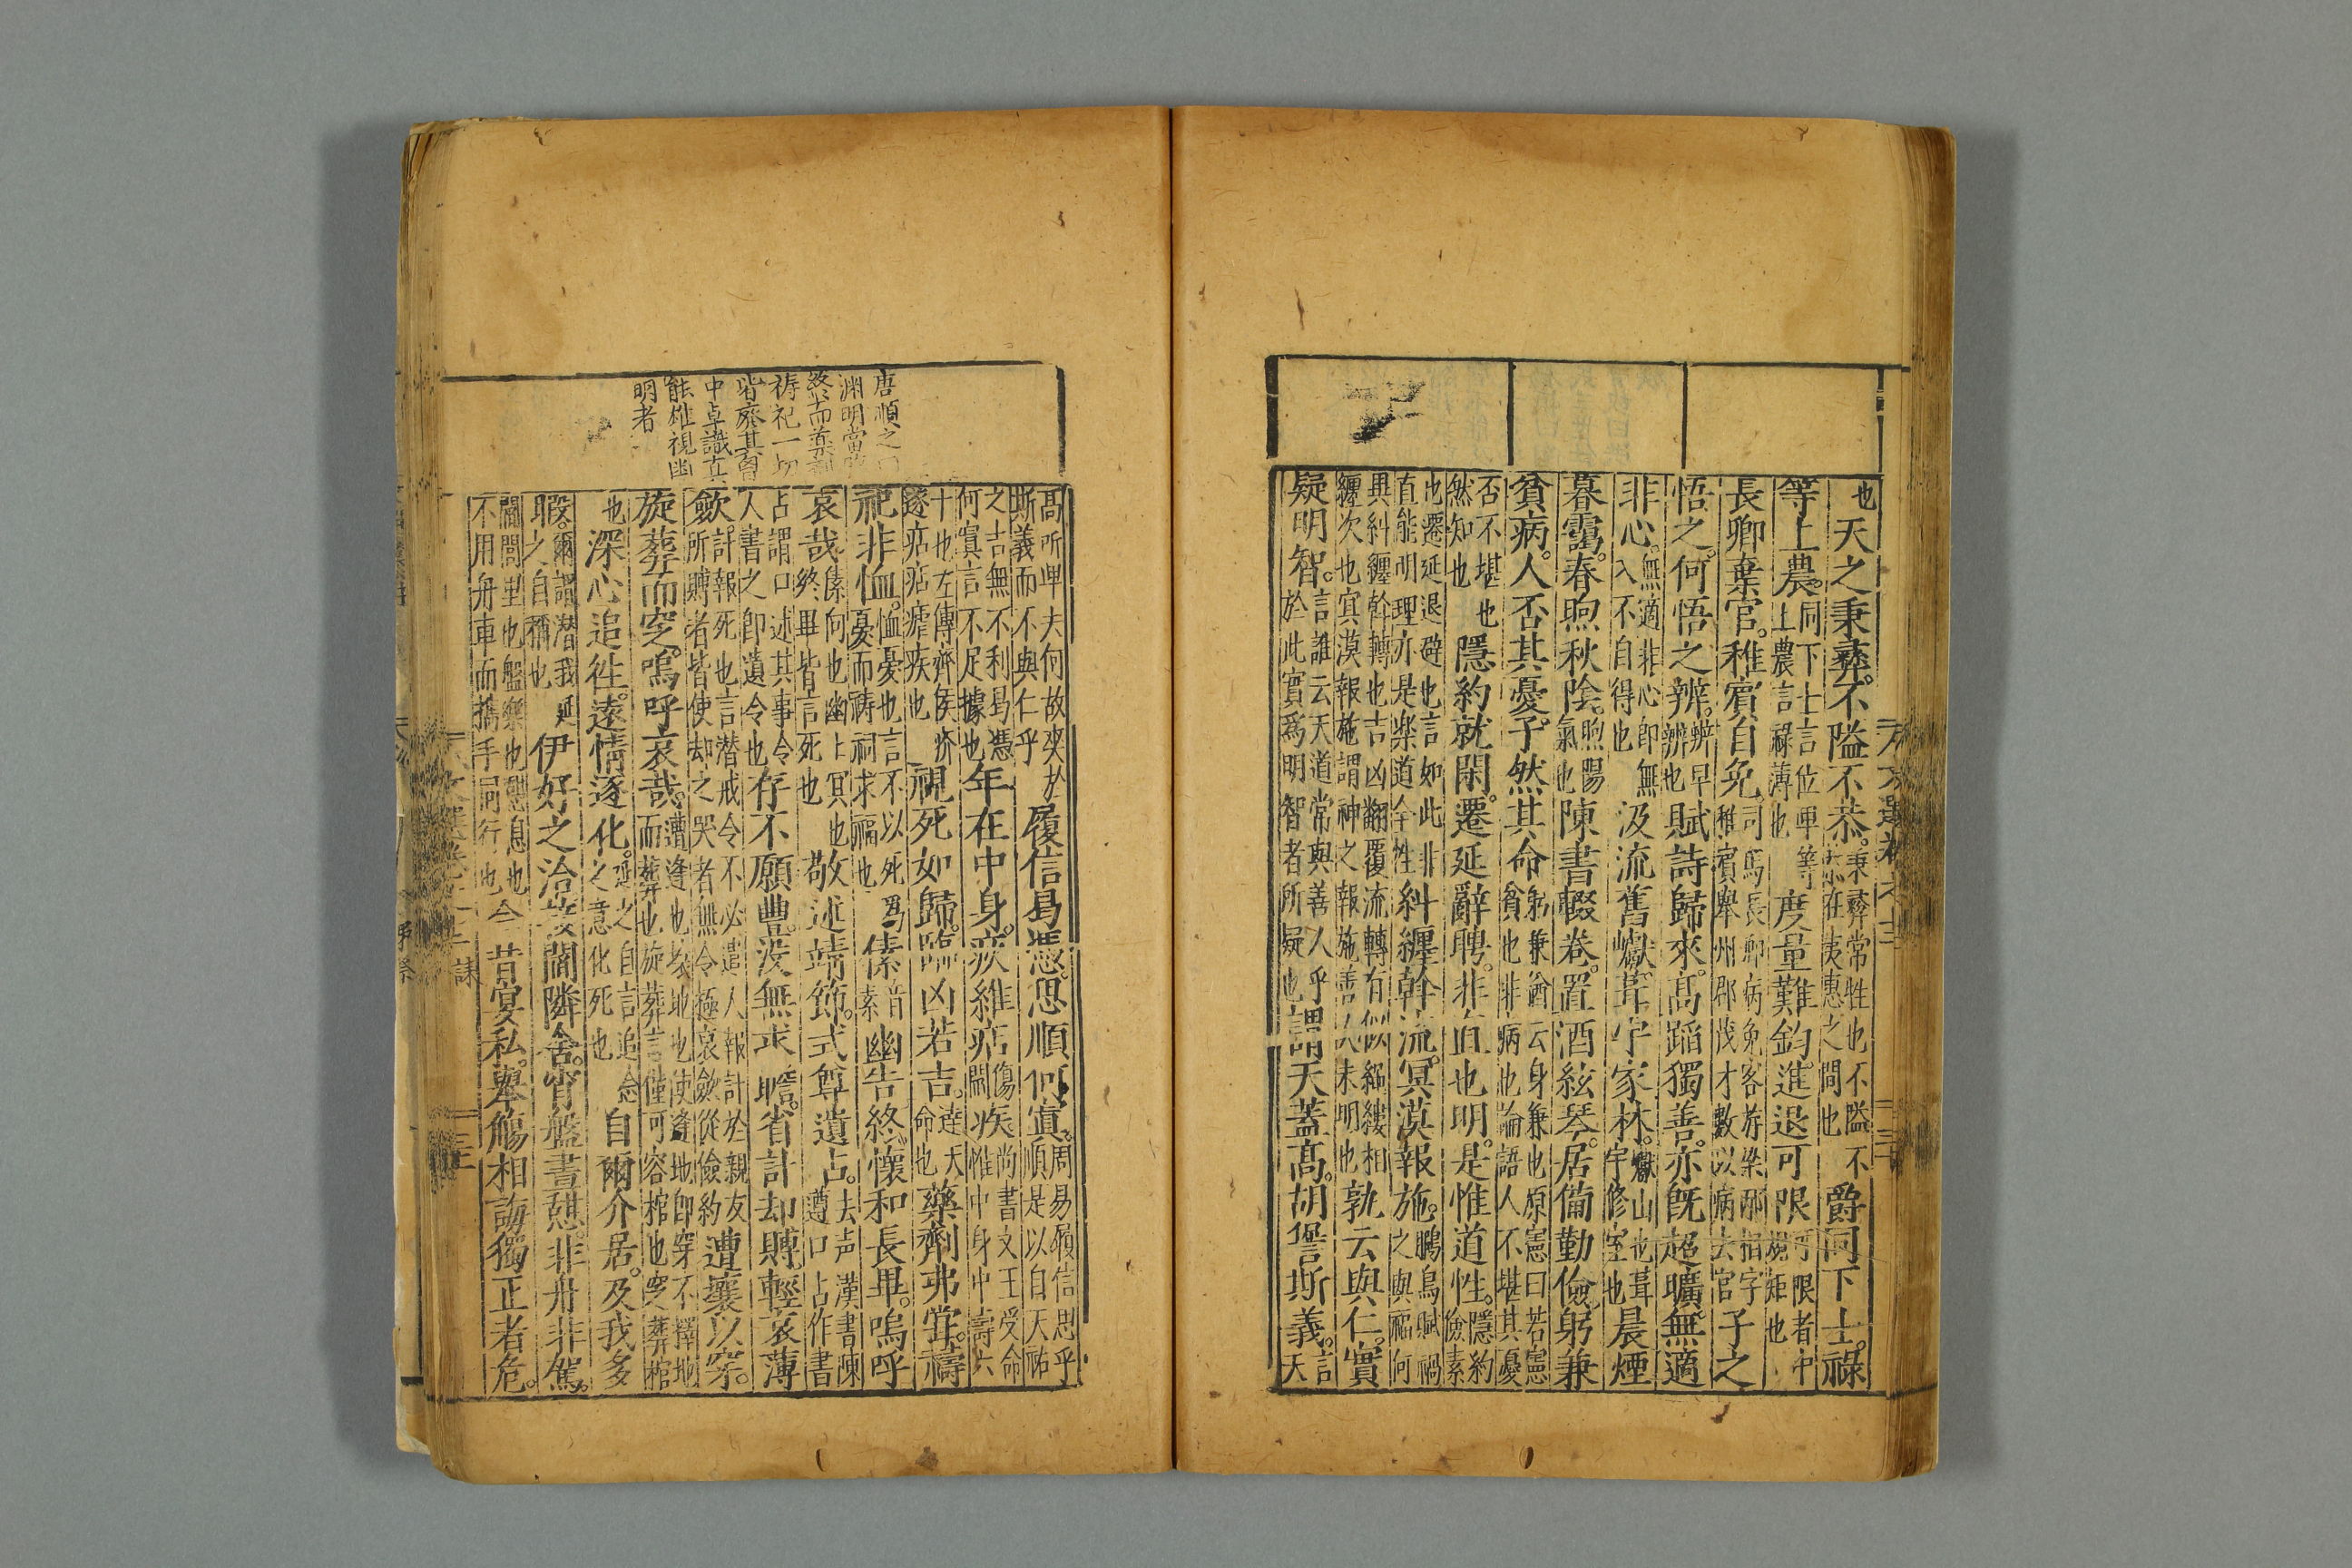 也天之秉彝不隘不恭秉彝常性也不隘不恭在夷惠之間也爵同下士祿
等上農同下士言位卑上農言祿薄也等度量難鈞進退可限可限者中規矩也
長卿棄官稚賓自免司馬長卿病免客游梁邴相字稚賓舉州郡茂才數以病去官子之
悟之何悟之辨辨早辨也賦詩歸來高蹈獨善亦旣超曠無適
非心無適非心即無入不自得也汲流舊巘葺宇家林巘山也葺宇修室也晨煙
暮靄春煦秋陰煦陽氣也陳書輟卷置酒絃琴居備勤儉躬兼
貧病人否其憂子然其命躬兼猶云身兼也原憲曰若憲貧也非病也論語人不堪其憂
否不堪也然知也隱約就閑遷延辭聘非直也明是惟道性隱約儉素
也遷延退避也言如此非直能明理亦是樂道全性糾纏斡流冥漠報施鵩鳥賦禍之與福何
異糾纏斡轉也吉凶翻覆流轉有似繩縷相纏次也冥漠報施謂神之報施善人未明也孰云與仁實
疑明智言誰云天道常與善人乎於此實爲明智者所疑也謂天蓋高胡諐斯義言天
高所卑夫何故爽於斯義而不與仁乎履信曷憑思順何寘周易履信思乎順是以自天祐
之吉無不利曷憑何寘言不足據也年在中身疢維痁疾尚書文王受命惟中身中壽六
十也左傳齊侯疥遂痁痁瘧疾也視死如歸臨凶若吉達天命也藥劑弗嘗禱
祀非恤恤憂也言不以死爲憂而禱祠求福也傃音素幽告終懷和長畢嗚呼
哀哉傃向也幽上冥也終畢皆言死也敬述靖節式尊遺占去声漢書陳遵口占作書
占謂口述其事令人書之即遺令也存不願豐沒無求贍省計却賻輕哀薄
斂訃報死也言潜戒令不必遣人報訃於親友所賻者皆使却之哭者無令極哀斂從儉約遭壤以穿
旋葬而窆嗚呼哀哉遭逢也壤地也使逢地即穿不擇地而葬也旋葬言僅可容棺也窆葬棺
也深心追往遠情逐化延之自言追念之意化死也自爾介居及我多
暇爾謂潜我延之自稱也伊好之洽接閻隣舍宵盤晝憩非舟非駕
閻閭里也盤樂也憩息也今不用舟車而攜手同行也念昔宴私舉觴相誨獨正者危
唐順之
淵明當
終而薬劑
祷祀一切
皆廢其胷
中卓識真
能雄視幽
明者